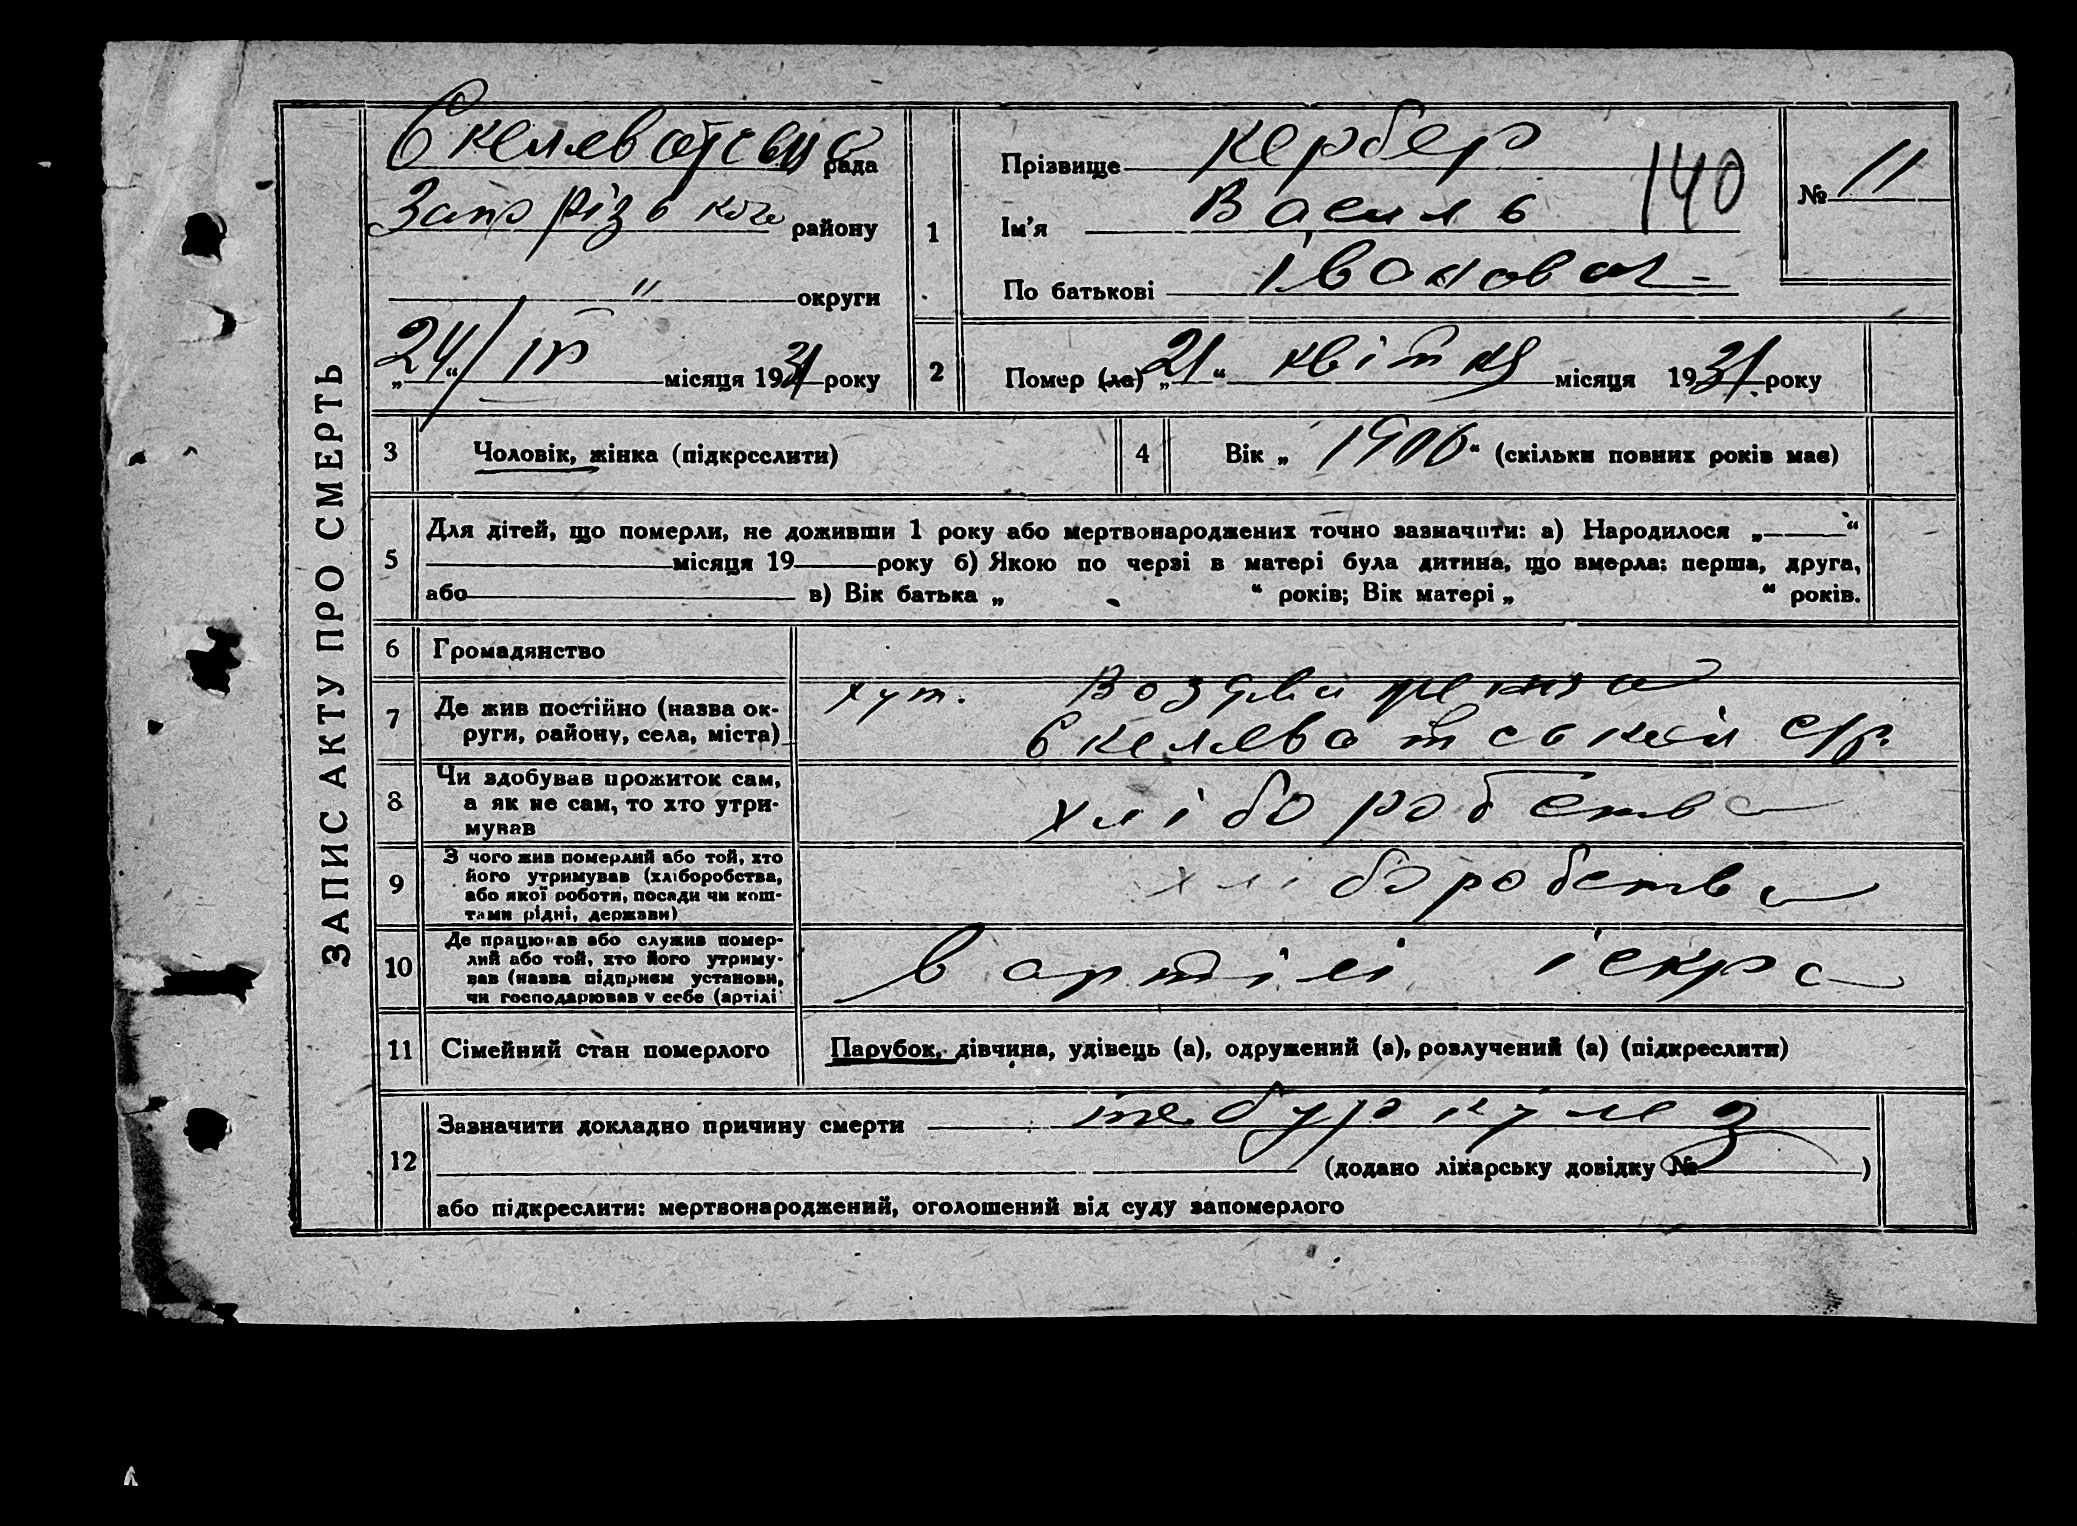 ЗАПИС АКТУ ПРО СМЕРТЬ
Скелеватська рада
Запорізького району
" округи
„24“ IV місяця 1931 року
1
Прізвище Кербер
Ім'я Василь
По батькові Іванович
140
№ 11
2 Помер (ла) „21“ квітня місяця 1931 року
3 Чоловік, жінка (підкреслити)
4 Вік „1906“ (скільки повних років має)
5 Для дітей, що померли, не доживши 1 року або мертвонароджених точно зазначити: а) Народилося „ “
місяця 19 року б) Якою по черзі в матері була дитина, що вмерла: перша, друга,
або в) Вік батька „ “ років; Вік матері „ “ років.
6 Громадянство
7 Де жив постійно (назва ок-
руги, району, села, міста)
хут.
Скелеватської с/р.
8 Чи здобував прожиток сам,
а як не сам, то хто утри-
мував
хліборобство
9 З чого жив померлий або той, хто
його утримував (хліборобства,
або якої роботи, посади чи кош-
тами рідні, держави)
хліборобство
10 Де працював або служив помер-
лий або той, хто його утриму-
вав (назва підприєм установи,
чи господарював у себе (артілі
в артілі іскра
11 Сімейний стан померлого
Парубок, дівчина, удівець (а), одружений (а), розлучений (а) (підкреслити)
12 Зазначити докладно причину смерти тебуркулез
(додано лікарську довідку № )
або підкреслити: мертвонароджений, оголошений від суду запомерлого